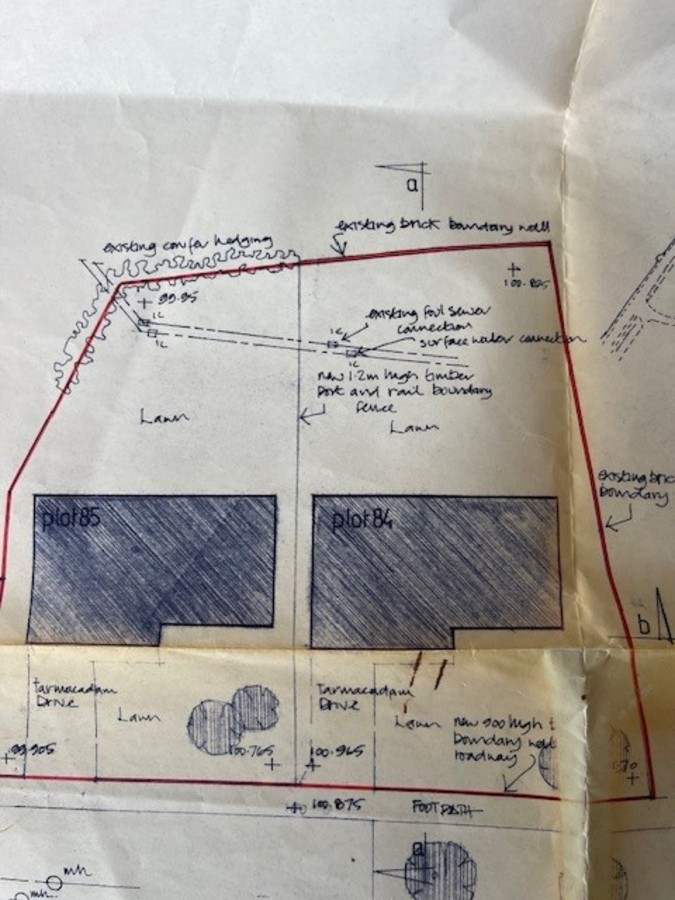 a
existing brick boundary wall
existing conifer hedging
100.825
99.95
IC
IC
existing foul sewer
connection
IC
surface water connection
IC
new 1.2m high timber
post and rail boundary
fence
Lawn
Lawn
existing bric
boundary
plot 85
plot 84
b
tarmacadam
Drive
Lawn
tarmacadam
Drive
Lawn
new 900 high
boundary wall
roadway
99.905
100.765
100.965
100.875
FOOTPATH
a
mh
mh